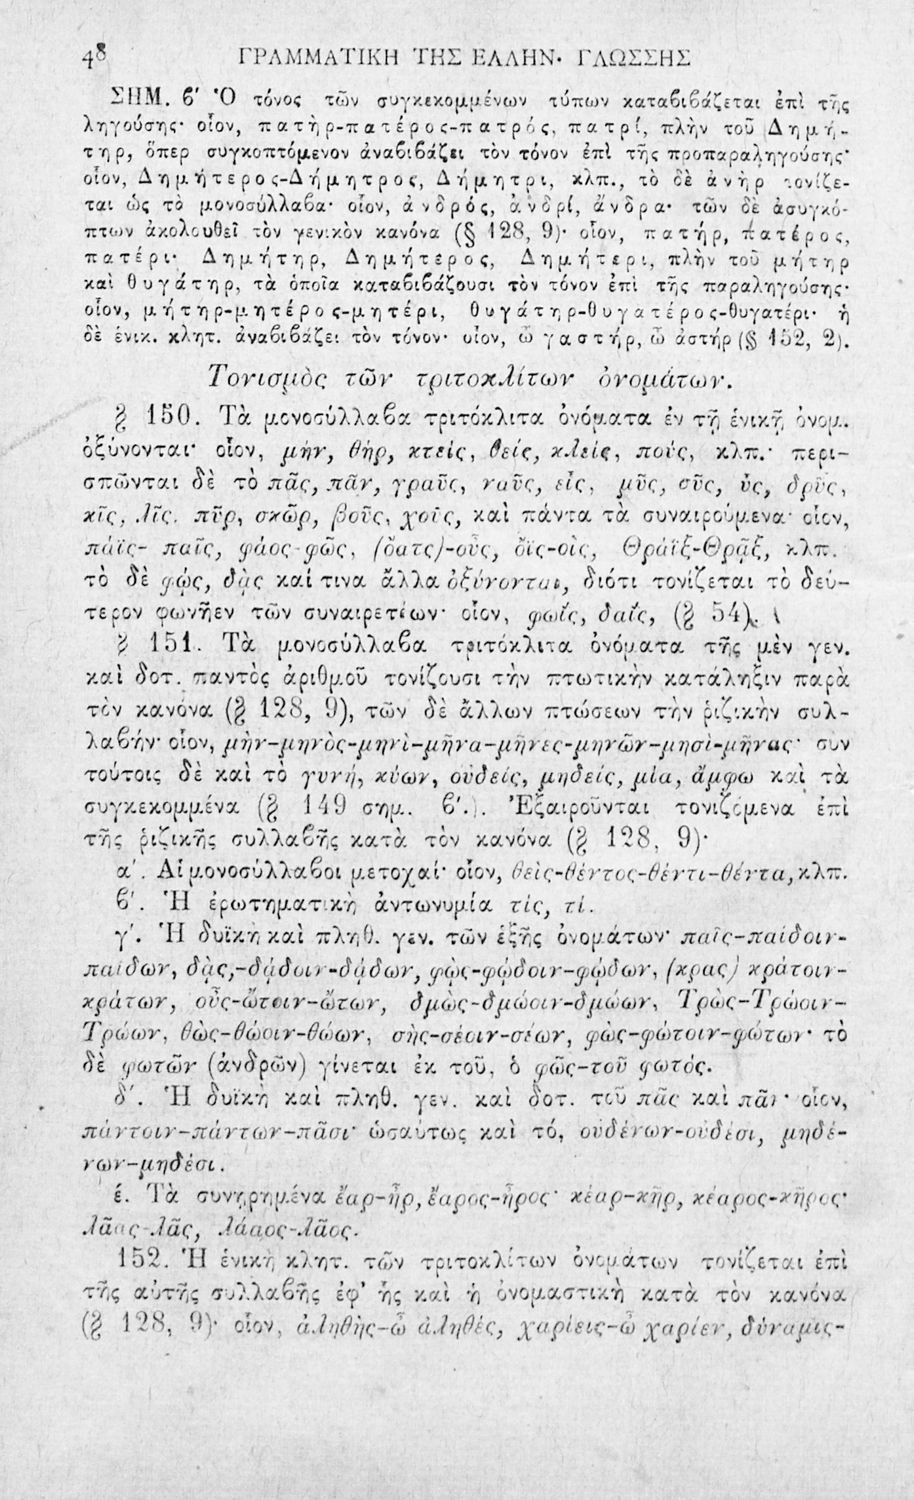 48 ΓΡΑΜΜΑΤΙΚΗ ΤΗΣ ΕΛΛΗΝ· ΓΛΩΣΣΗΣ
ΣΗΜ. ϐ′ Ὁ τόνος τῶν συγκεκομμένων τύπων καταϐιϐάζεται ἐπὶ τῆς
ληγούσης· οἷον, πατὴρ-πατέρος-πατρός, πατρί, πλὴν τοῦ Δημή-
τηρ, ὅπερ συγκοπτόμενον ἀναϐιϐάζει τὸν τόνον ἐπὶ τῆς προπαραληγούσης·
οἷον, Δημήτερος-Δήμητρος, Δήμητρι, κλπ., τὸ δὲ ἀνὴρ τονίζε-
ται ὡς τὰ μονοσύλλαϐα· οἷον, ἀνδρός, ἀνδρί, ἄνδρα· τῶν δὲ ἀσυγκό-
πτων ἀκολουθεῖ τὸν γενικὸν κανόνα (§ 128, 9)· οἷον, πατήρ, πατέρος,
πατέρι· Δημήτηρ, Δημήτερος, Δημήτερι, πλὴν τοῦ μήτηρ
καὶ θυγάτηρ, τὰ ὁποῖα καταϐιϐάζουσι τὸν τόνον ἐπὶ τῆς παραληγούσης·
οἷον, μήτηρ-μητέρος-μητέρι, θυγάτηρ-θυγατέρος-θυγατέρι· ἡ
δὲ ἑνικ. κλητ. ἀναϐιϐάζει τὸν τόνον· οἷον, ὦ γαστήρ, ὦ ἀστήρ (§ 152, 2).
Τονισμὸς τῶν τριτοκλίτων ὀνομάτων.
§ 150. Τὰ μονοσύλλαϐα τριτόκλιτα ὀνόματα ἐν τῇ ἑνικῇ ὀνομ.
ὀξύνονται· οἷον, μήν, θήρ, κτείς, θείς, κλείς, πούς, κλπ.· περι-
σπῶνται δὲ τὸ πᾶς, πᾶν, γραῦς, ναῦς, εἷς, μῦς, σῦς, ὗς, δρῦς,
κῖς, λῖς, πῦρ, σκῶρ, βοῦς, χοῦς, καὶ πάντα τὰ συναιρούμενα· οἷον,
πάϊς- παῖς, φάος-φῶς, (ὄατς)-οὖς, ὄϊς-οἶς, Θράϊξ-Θρᾷξ, κλπ.
τὸ δὲ φῴς, δᾴς καί τινα ἄλλα ὀξύνονται, διότι τονίζεται τὸ δεύ-
τερον φωνῆεν τῶν συναιρετέων· οἷον, φωΐς, δαΐς, (§ 54).
§ 151. Τὰ μονοσύλλαϐα τριτόκλιτα ὀνόματα τῆς μὲν γεν.
καὶ δοτ. παντὸς ἀριθμοῦ τονίζουσι τὴν πτωτικὴν κατάληξιν παρὰ
τὸν κανόνα (§ 128, 9), τῶν δὲ ἄλλων πτώσεων τὴν ῥιζικὴν συλ-
λαϐήν· οἷον, μὴν-μηνὸς-μηνὶ-μῆνα-μῆνες-μηνῶν-μησὶ-μῆνας· συν
τούτοις δὲ καὶ τὸ γυνή, κύων, οὐδείς, μηδείς, μία, ἄμφω καὶ τὰ
συγκεκομμένα (§ 149 σημ. ϐ′.). Ἐξαιροῦνται τονιζόμενα ἐπὶ
τῆς ῥιζικῆς συλλαϐῆς κατὰ τὸν κανόνα (§ 128, 9)·
α′. Αἱ μονοσύλλαϐοι μετοχαί· οἷον, θεὶς-θέντος-θέντι-θέντα, κλπ.
ϐ′. Ἡ ἐρωτηματικὴ ἀντωνυμία τίς, τί.
γ′. Ἡ δυϊκὴ καὶ πληθ. γεν. τῶν ἑξῆς ὀνομάτων· παῖς-παίδοιν-
παίδων, δᾲς,-δᾴδοιν-δᾴδων, φῲς-φῴδοιν-φῴδων, (κρας) κράτοιν-
κράτων, οὖς-ὤτοιν-ὤτων, δμὼς-δμώοιν-δμώων, Τρὼς-Τρώοιν-
Τρώων, θὼς-θώοιν-θώων, σὴς-σέοιν-σέων, φὼς-φώτοιν-φώτων· τὸ
δὲ φωτῶν (ἀνδρῶν) γίνεται ἐκ τοῦ, ὁ φῶς-τοῦ φωτός.
δ′. Ἡ δυϊκὴ καὶ πληθ. γεν. καὶ δοτ. τοῦ πᾶς καὶ πᾶν· οἷον,
πάντοιν-πάντων-πᾶσι· ὡσαύτως καὶ τό, οὐδένων-οὐδέσι, μηδέ-
νων-μηδέσι.
έ. Τὰ συνῃρημένα ἔαρ-ἦρ, ἔαρος-ἦρος· κέαρ-κῆρ, κέαρος-κῆρος·
λᾶας-λᾶς, λάαος-λᾶος.
152. Ἡ ἑνικὴ κλητ. τῶν τριτοκλίτων ὀνομάτων τονίζεται ἐπὶ
τῆς αὐτῆς συλλαϐῆς ἐφ’ ἧς καὶ ἡ ὀνομαστικὴ κατὰ τὸν κανόνα
(§ 128, 9)· οἷον, ἀληθὴς-ὦ ἀληθές, χαρίεις-ὦ χαρίεν, δύναμις-